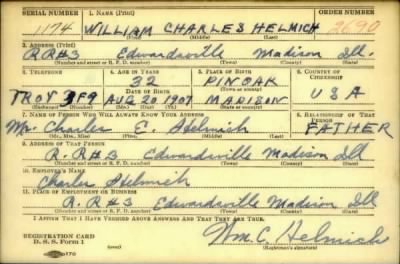 SERIAL NUMBER 1. NAME (Print) ORDER NUMBER
1174 WILLIAM CHARLES HELMICH 2690
(First) (Middle) (Last)
2. ADDRESS (Print)
RR#3 Edwardsville Madison Ill.
(Number and street or R. F. D. number) (Town) (County) (State)
3. TELEPHONE 4. AGE IN YEARS 5. PLACE OF BIRTH 6. COUNTRY OF CITIZENSHIP
32 PINOAK
DATE OF BIRTH (Town or county)
TROY 3F9 AUG 20 1907 MADISON USA
(Exchange) (Number) (Mo.) (Day) (Yr.) (State or country)
7. NAME OF PERSON WHO WILL ALWAYS KNOW YOUR ADDRESS 8. RELATIONSHIP OF THAT PERSON
Mr. Charles E. Helmich FATHER
(Mr., Mrs., Miss) (First) (Middle) (Last)
9. ADDRESS OF THAT PERSON
R.R#3 Edwardsville Madison Ill
(Number and street or R. F. D. number) (Town) (County) (State)
10. EMPLOYER'S NAME
Charles Helmich
11. PLACE OF EMPLOYMENT OR BUSINESS
R.R#3 Edwardsville Madison, Ill
(Number and street or R. F. D. number) (Town) (County) (State)
I AFFIRM THAT I HAVE VERIFIED ABOVE ANSWERS AND THAT THEY ARE TRUE.
REGISTRATION CARD
D. S. S. Form 1 Wm. C. Helmich
(Registrant's signature)